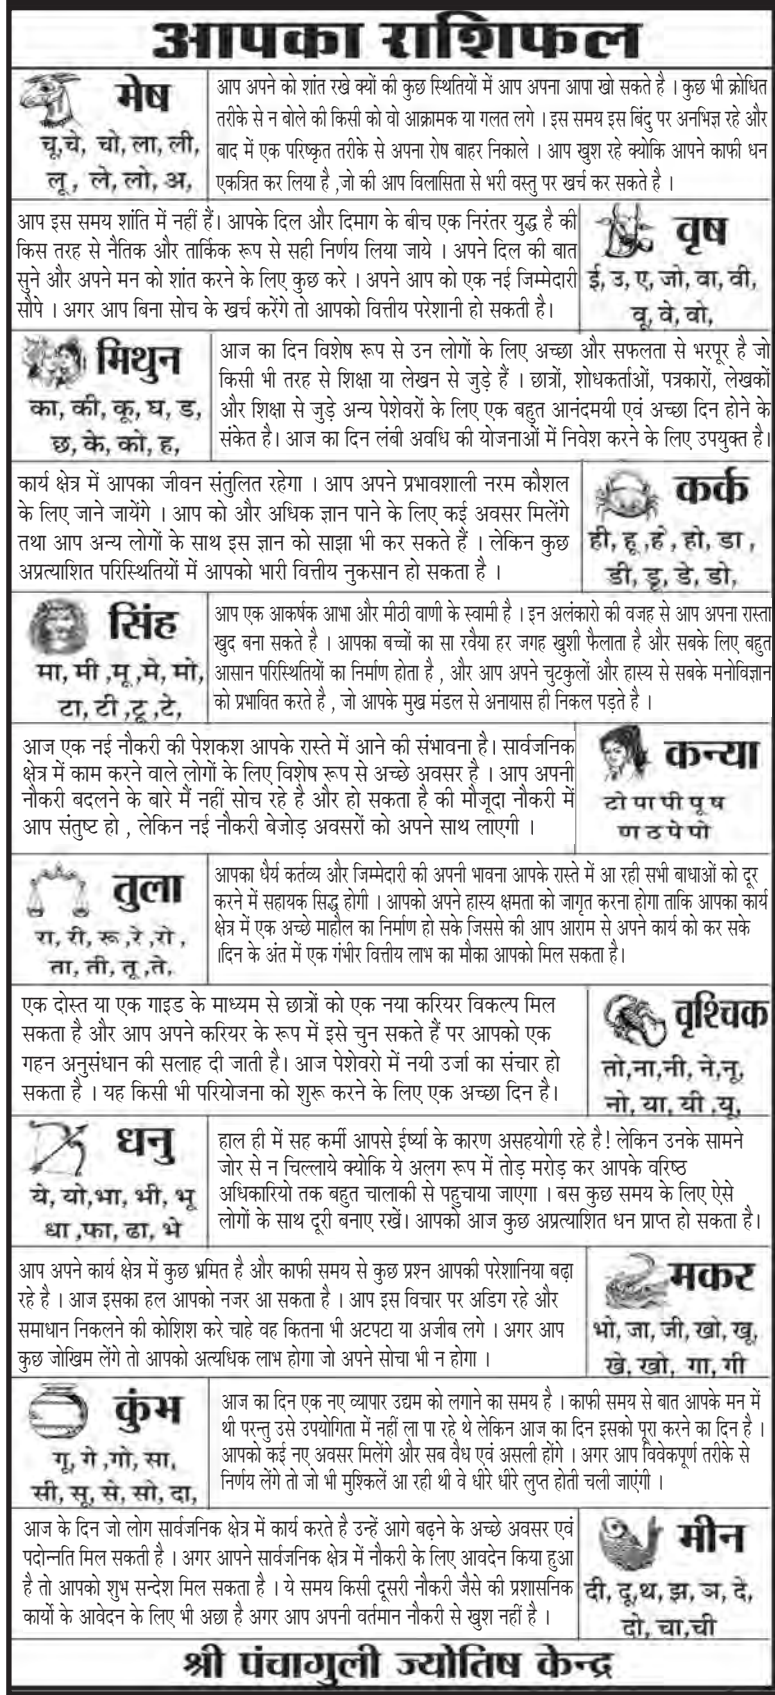 आपका राशिफल
मेष
चू,चे, चो, ला, ली,
लू , ले, लो, अ,
आप अपने को शांत रखे क्यों की कुछ स्थितियों में आप अपना आपा खो सकते है । कुछ भी क्रोधित
तरीके से न बोले की किसी को वो आक्रामक या गलत लगे । इस समय इस बिंदु पर अनभिज्ञ रहे और
बाद में एक परिष्कृत तरीके से अपना रोष बाहर निकाले । आप खुश रहे क्योकि आपने काफी धन
एकत्रित कर लिया है ,जो की आप विलासिता से भरी वस्तु पर खर्च कर सकते है ।
आप इस समय शांति में नहीं हैं। आपके दिल और दिमाग के बीच एक निरंतर युद्ध है की
किस तरह से नैतिक और तार्किक रूप से सही निर्णय लिया जाये । अपने दिल की बात
सुने और अपने मन को शांत करने के लिए कुछ करे । अपने आप को एक नई जिम्मेदारी
सौपे । अगर आप बिना सोच के खर्च करेंगे तो आपको वित्तीय परेशानी हो सकती है।
वृष
ई, उ, ए, जो, वा, वी,
वू, वे, वो,
मिथुन
का, की, कू, घ, ड,
छ, के, को, ह,
आज का दिन विशेष रूप से उन लोगों के लिए अच्छा और सफलता से भरपूर है जो
किसी भी तरह से शिक्षा या लेखन से जुड़े हैं । छात्रों, शोधकर्ताओं, पत्रकारों, लेखकों
और शिक्षा से जुड़े अन्य पेशेवरों के लिए एक बहुत आनंदमयी एवं अच्छा दिन होने के
संकेत है। आज का दिन लंबी अवधि की योजनाओं में निवेश करने के लिए उपयुक्त है।
कार्य क्षेत्र में आपका जीवन संतुलित रहेगा । आप अपने प्रभावशाली नरम कौशल
के लिए जाने जायेंगे । आप को और अधिक ज्ञान पाने के लिए कई अवसर मिलेंगे
तथा आप अन्य लोगों के साथ इस ज्ञान को साझा भी कर सकते हैं । लेकिन कुछ
अप्रत्याशित परिस्थितियों में आपको भारी वित्तीय नुकसान हो सकता है ।
कर्क
ही, हू ,हे , हो, डा ,
डी, डू, डे, डो,
सिंह
मा, मी ,मू ,मे, मो,
टा, टी ,टू ,टे,
आप एक आकर्षक आभा और मीठी वाणी के स्वामी है । इन अलंकारो की वजह से आप अपना रास्ता
खुद बना सकते है । आपका बच्चों का सा रवैया हर जगह खुशी फैलाता है और सबके लिए बहुत
आसान परिस्थितियों का निर्माण होता है , और आप अपने चुटकुलों और हास्य से सबके मनोविज्ञान
को प्रभावित करते है , जो आपके मुख मंडल से अनायास ही निकल पड़ते है ।
आज एक नई नौकरी की पेशकश आपके रास्ते में आने की संभावना है। सार्वजनिक
क्षेत्र में काम करने वाले लोगों के लिए विशेष रूप से अच्छे अवसर है । आप अपनी
नौकरी बदलने के बारे मैं नहीं सोच रहे है और हो सकता है की मौजूदा नौकरी में
आप संतुष्ट हो , लेकिन नई नौकरी बेजोड़ अवसरों को अपने साथ लाएगी ।
कन्या
टो पा पी पू ष
ण ठ पे पो
तुला
रा, री, रू ,रे ,रो ,
ता, ती, तू ,ते,
आपका धैर्य कर्तव्य और जिम्मेदारी की अपनी भावना आपके रास्ते में आ रही सभी बाधाओं को दूर
करने में सहायक सिद्ध होगी । आपको अपने हास्य क्षमता को जागृत करना होगा ताकि आपका कार्य
क्षेत्र में एक अच्छे माहौल का निर्माण हो सके जिससे की आप आराम से अपने कार्य को कर सके
।दिन के अंत में एक गंभीर वित्तीय लाभ का मौका आपको मिल सकता है।
एक दोस्त या एक गाइड के माध्यम से छात्रों को एक नया करियर विकल्प मिल
सकता है और आप अपने करियर के रूप में इसे चुन सकते हैं पर आपको एक
गहन अनुसंधान की सलाह दी जाती है। आज पेशेवरो में नयी उर्जा का संचार हो
सकता है । यह किसी भी परियोजना को शुरू करने के लिए एक अच्छा दिन है।
वृश्चिक
तो,ना,नी, ने,नू,
नो, या, यी ,यू,
धनु
ये, यो,भा, भी, भू
धा ,फा, ढा, भे
हाल ही में सह कर्मी आपसे ईर्ष्या के कारण असहयोगी रहे है! लेकिन उनके सामने
जोर से न चिल्लाये क्योकि ये अलग रूप में तोड़ मरोड़ कर आपके वरिष्ठ
अधिकारियो तक बहुत चालाकी से पहुचाया जाएगा । बस कुछ समय के लिए ऐसे
लोगों के साथ दूरी बनाए रखें। आपको आज कुछ अप्रत्याशित धन प्राप्त हो सकता है।
आप अपने कार्य क्षेत्र में कुछ भ्रमित है और काफी समय से कुछ प्रश्न आपकी परेशानिया बढ़ा
रहे है । आज इसका हल आपको नजर आ सकता है । आप इस विचार पर अडिग रहे और
समाधान निकलने की कोशिश करे चाहे वह कितना भी अटपटा या अजीब लगे । अगर आप
कुछ जोखिम लेंगे तो आपको अत्यधिक लाभ होगा जो अपने सोचा भी न होगा ।
मकर
भो, जा, जी, खी, खू,
खे, खो, गा, गी
कुंभ
गू, गे ,गो, सा,
सी, सू, से, सो, दा,
आज का दिन एक नए व्यापार उद्यम को लगाने का समय है । काफी समय से बात आपके मन में
थी परन्तु उसे उपयोगिता में नहीं ला पा रहे थे लेकिन आज का दिन इसको पूरा करने का दिन है ।
आपको कई नए अवसर मिलेंगे और सब वैध एवं असली होंगे । अगर आप विवेकपूर्ण तरीके से
निर्णय लेंगे तो जो भी मुश्किलें आ रही थी वे धीरे धीरे लुप्त होती चली जाएंगी ।
आज के दिन जो लोग सार्वजनिक क्षेत्र में कार्य करते है उन्हें आगे बढ़ने के अच्छे अवसर एवं
पदोन्नति मिल सकती है । अगर आपने सार्वजनिक क्षेत्र में नौकरी के लिए आवदेन किया हुआ
है तो आपको शुभ सन्देश मिल सकता है । ये समय किसी दूसरी नौकरी जैसे की प्रशासनिक
कार्यो के आवेदन के लिए भी अछा है अगर आप अपनी वर्तमान नौकरी से खुश नहीं है ।
मीन
दी, दू,थ, झ, ञ, दे,
दो, चा,ची
श्री पंचागुली ज्योतिष केन्द्र